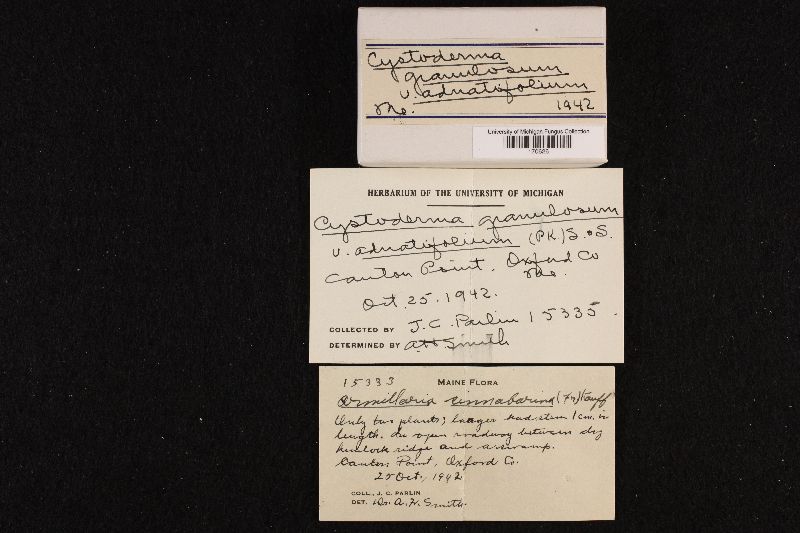 Cystoderma
granulosum
v. adnatifolium
Me. 1942
University of Michigan Fungus Collection
HERBARIUM OF THE UNIVERSITY OF MICHIGAN
Cystoderma granulosum
v. adnatifolium (PK) S. & S.
Canton Point, Oxford Co
Me.
Oct 25. 1942.
COLLECTED BY J.C. Parlin 15335
DETERMINED BY AH Smith
15333 MAINE FLORA
Armillaria cinnabarina (Fr) Kauff
Only two plants; larger had stem 1 cm. in
length. In open roadway between dry
hemlock ridge and a swamp.
Canton Point, Oxford Co.
25 Oct., 1942
COLL., J. C. PARLIN
DET. Dr. A. H. Smith.